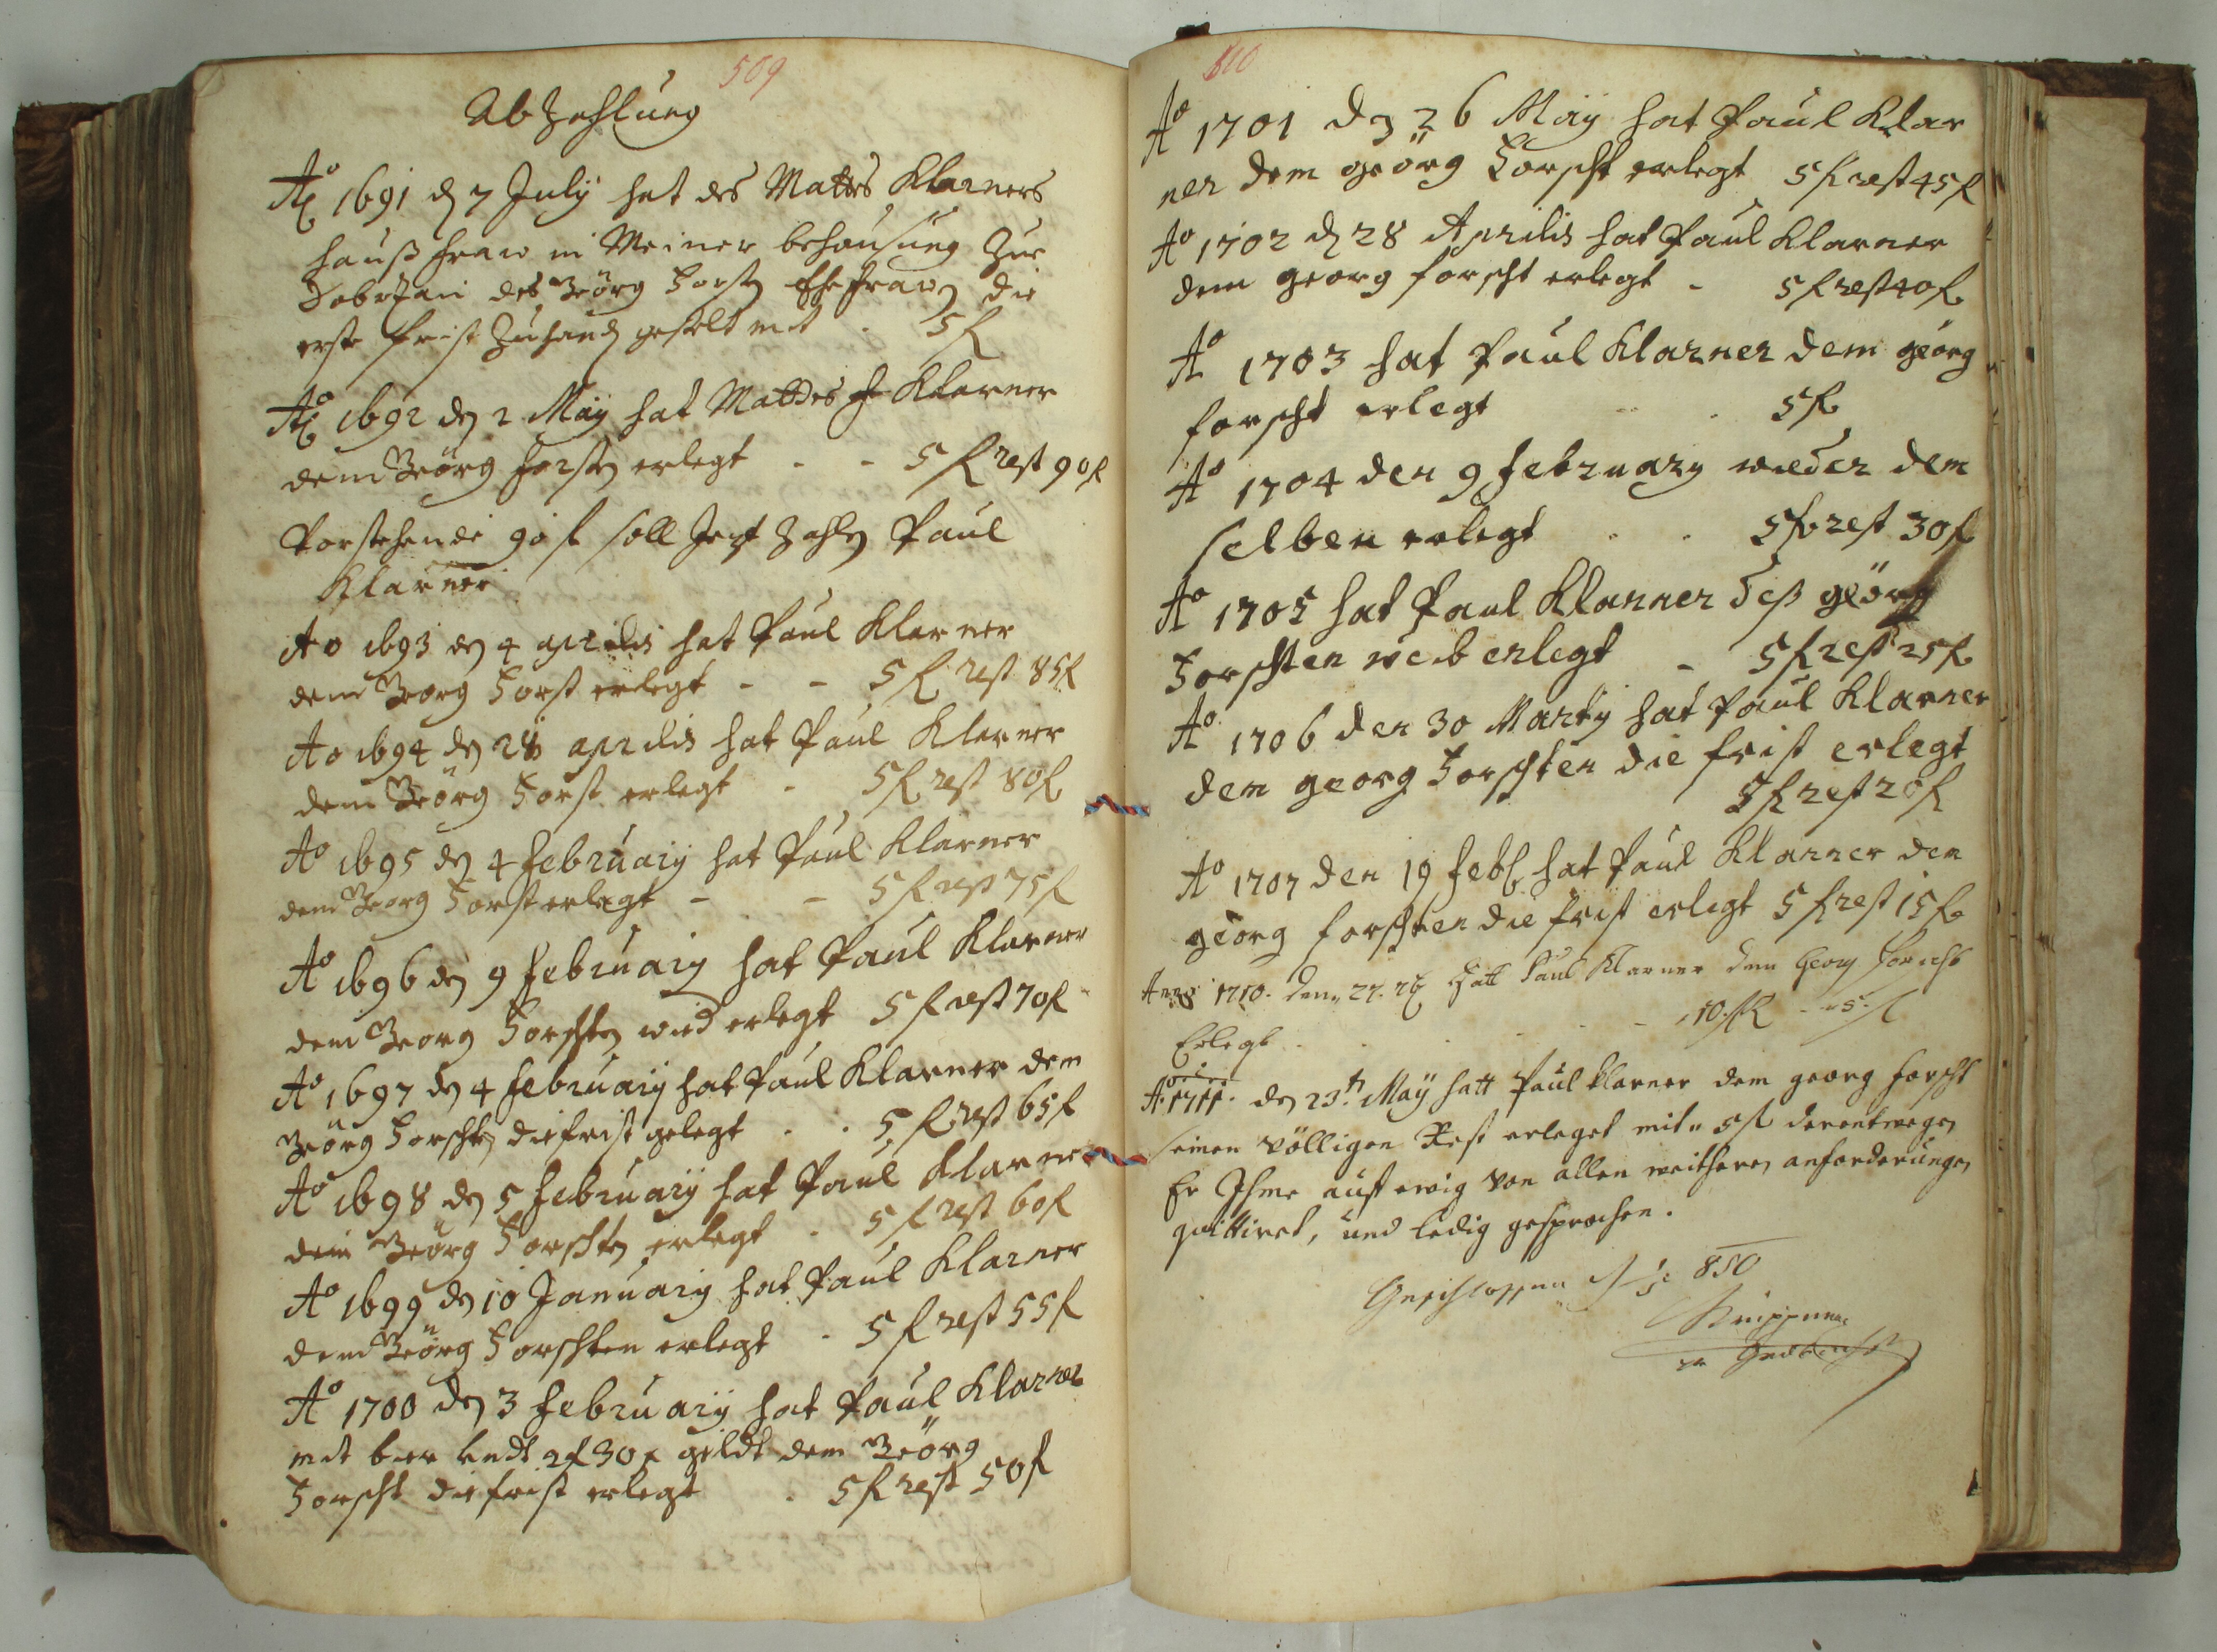 509
Abzahlung
Ao 1691 dq 7 July hat des Mattes Klarners
haußfraw in Meiner behausung zue
Dobrzan des Geörg Forstq Ehefrawq die
erste frist Zuhandq gestelt mit . 5 fl
Ao 1692 dq 2 Maÿ hat Mattdes Klarner
dem Geörg Forstq erlegt - - 5 fl rest 90 fl
Vorstehende 90 fl soll Jetzt Zahlq Paul
Klarner
Ao 1693 dq 4 aprilis hat Paul Klarner
dem Georg Forst erlegt - - 5 fl rest 85 fl
Ao 1694 dq 28 aprilis hat Paul Klarner
dem Geörg Forst erlegt - 5 fl rest 80 fl
Ao 1695 dq 4 february hat Paul Klarner
dem Georg Forst erlegt - - 5 fl rest 75 fl
Ao 1696 dq 9 february hat Paul Klarner
dem Georg Forschtq wied erlegt 5 fl rest 70 fl
Ao 1697 dq 4 february hat Paul Klarner dem
Geörg Forschtq die frist gelegt . . 5 fl rest 65 fl
Ao 1698 dq 5 february hat Paul Klarner
dem Geörg Forschtq erlegt . 5 fl rest 60 fl
Ao 1699 dq 10 January hat Paul Klarner
dem Geörg Forschten erlegt - 5 fl rest 55 fl
Ao 1700 dq 3 february hat Paul Klarner
mit bier undt 2 fl 30 x geldt dem Geörg
Forscht die frist erlegt . 5 fl rest 50 fl
510
Ao 1701 dq 26 Maÿ hat Paul Klar
ner dem geörg Forscht erlegt 5 fl rest 45 fl
Ao 1702 dq 28 Aprilis hat Paul Klarner
dem georg forscht erlegt - 5 fl rest 40 fl
Ao 1703 hat Paul Klarner dem georg
forscht erlegt . 5 fl
Ao 1704 den 9 february wieder dem
selben erlegt . . 5 fl rest 30 fl
Ao 1705 hat Paul Klarner deß geörg
Forschten weib erlegt - 5 fl rest 25 fl
Ao 1706 den 30 Marty hat Paul Klarner
dem georg Forschten die frist erlegt
5 fl rest 20 fl
Ao 1707 den 19 febl hat Paul Klarner dem
georg forschten die frist erlegt 5 fl rest 15 fl
Anno 1710. den 27. Hatt Paul Klarner dem Georg Forscht
Erlegt . . . - 10. fl R - 5. fl
Ao. 1711. dq 23t. Maÿ hatt Paul Klarner dem georg forscht
seinen völligen Rest erleget mit 5 fl derentwegq
Er Ihme auff ewig von allen weitherq anforderungq
quittiret, und ledig gesprochen.
Geschlossen 850